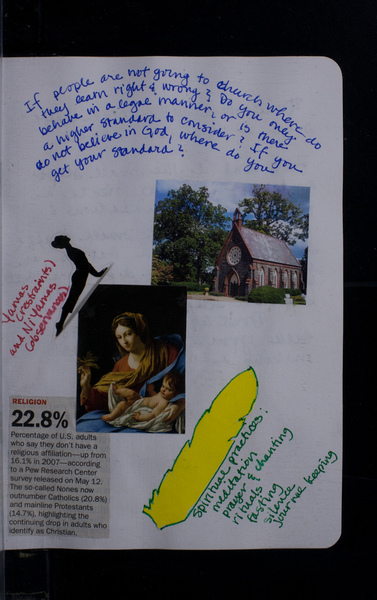 If people are not going to church where do
they learn right & wrong? Do you only
behave in a legal manner, or is there
a higher standard to consider? If you
do not believe in God, where do you
get your standard?
Yamas
(restraints)
and Niyamas
(observances)
RELIGION
22.8%
Percentage of U.S. adults
who say they don't have a
religious affiliation—up from
16.1% in 2007—according
to a Pew Research Center
survey released on May 12.
The so-called Nones now
outnumber Catholics (20.8%)
and mainline Protestants
(14.7%), highlighting the
continuing drop in adults who
identify as Christian.
spiritual practices:
meditation
prayer & chanting
rituals
fasting
silence
journal keeping